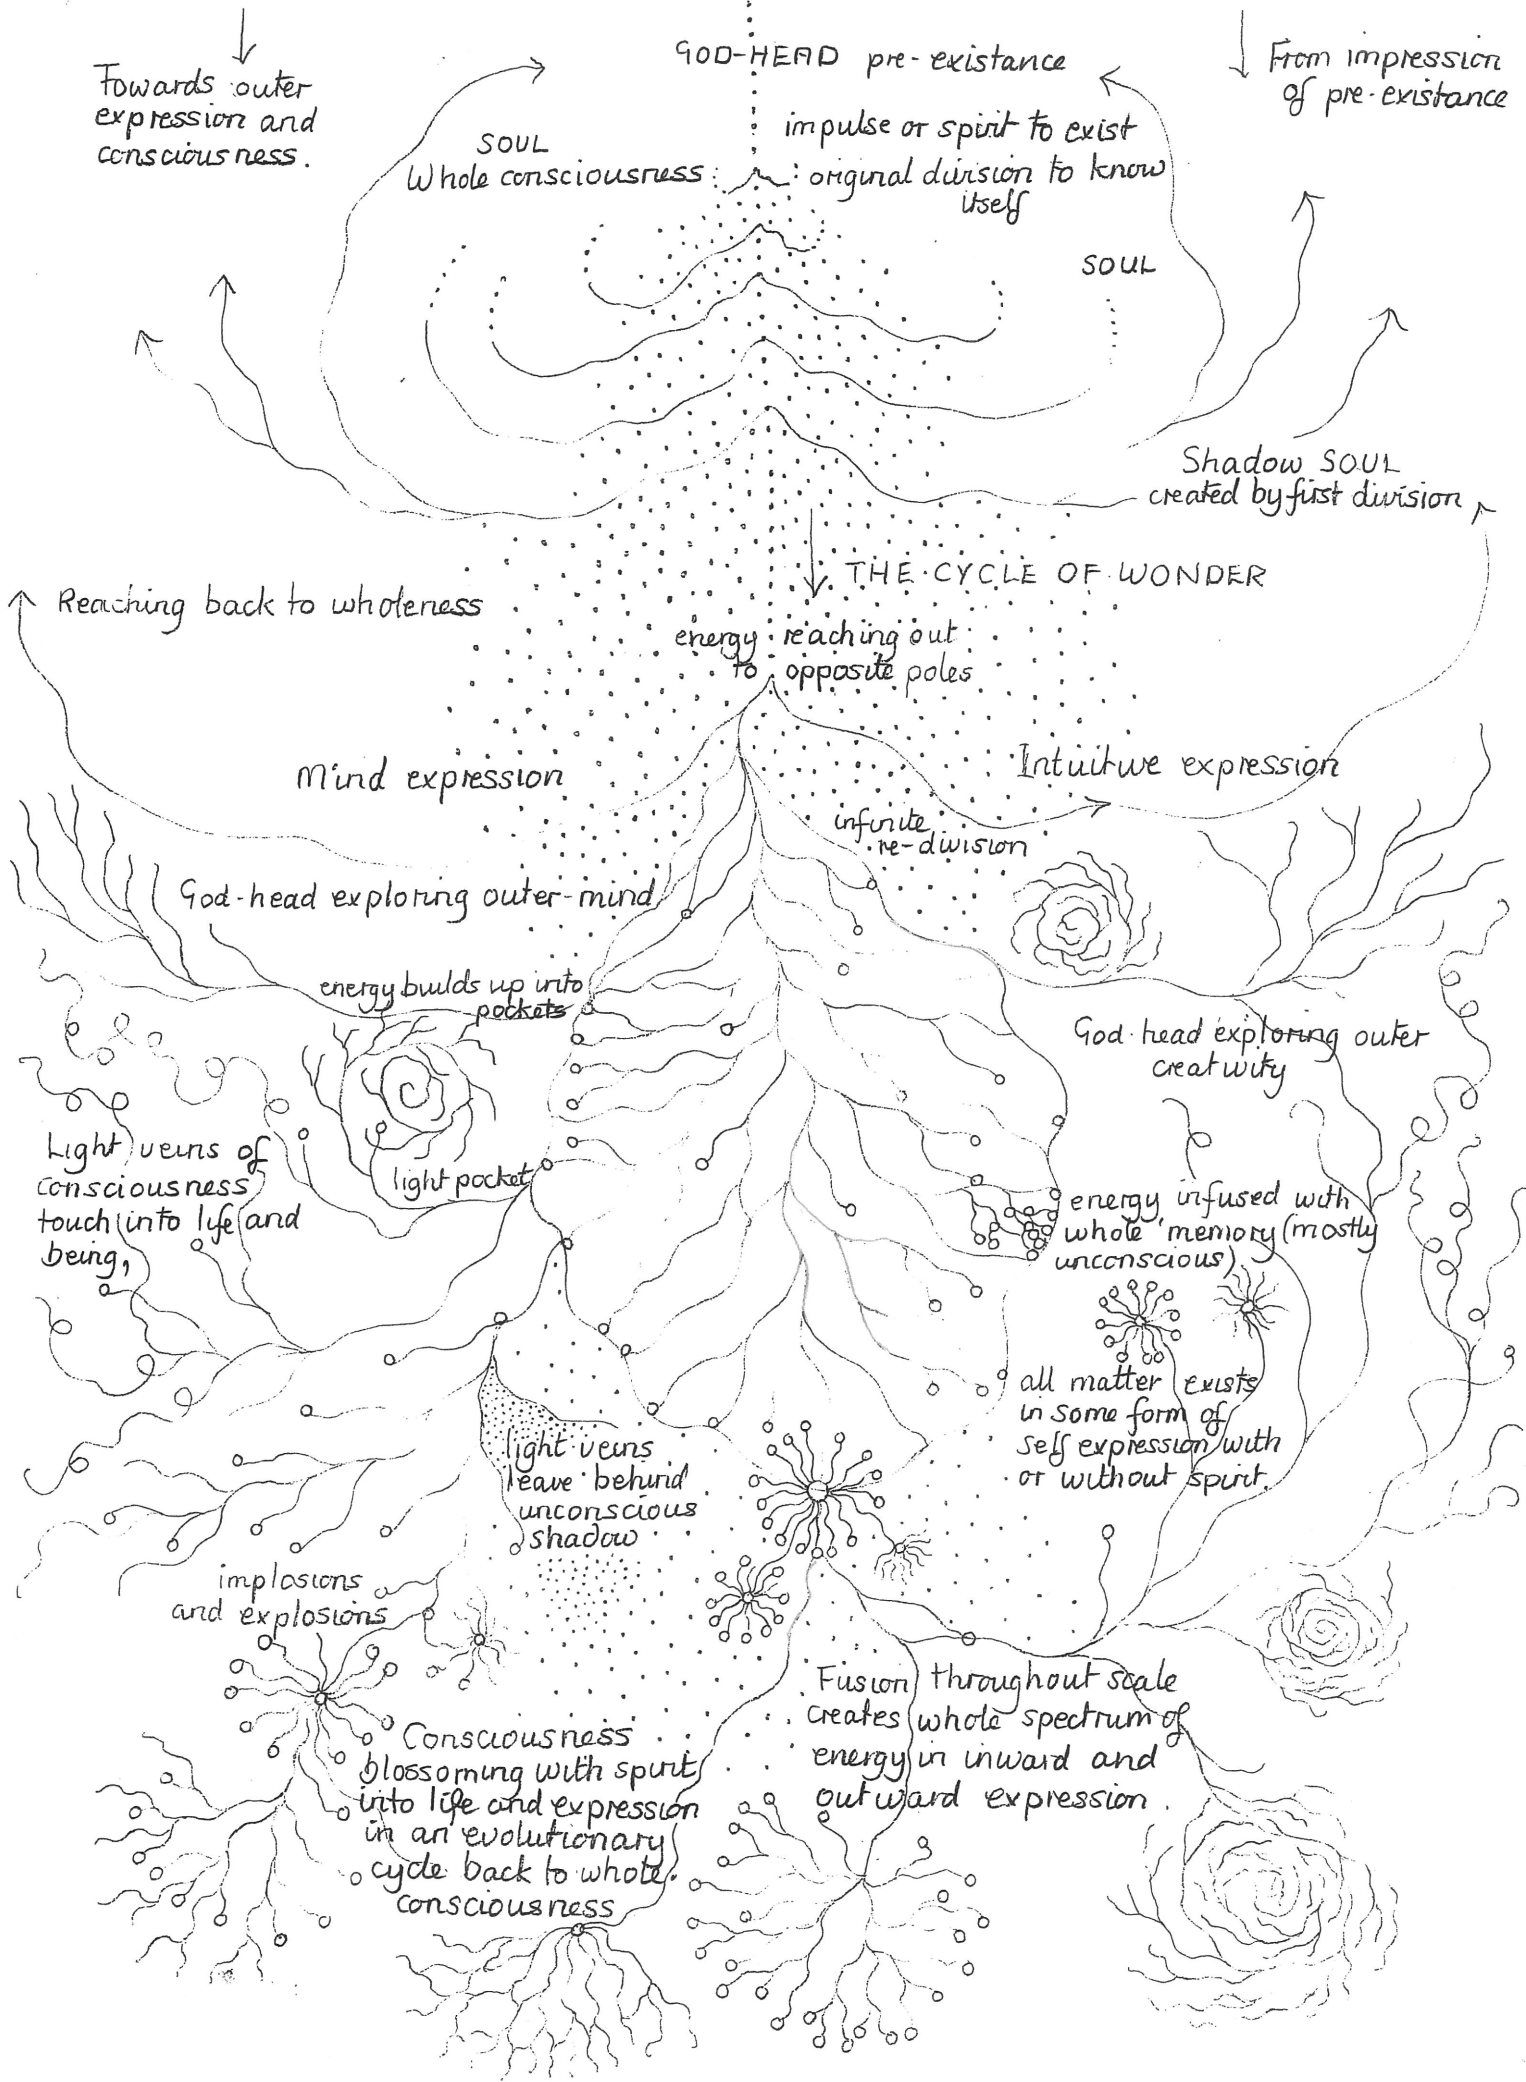 GOD-HEAD pre-existance
Towards outer
expression and
consciousness.
From impression
of pre-existance
SOUL
Whole consciousness
impulse or spirit to exist
original division to know
itself
SOUL
Shadow SOUL
created by first division
THE CYCLE OF WONDER
Reaching back to wholeness
energy reaching out
to opposite poles
Mind expression
Intuitive expression
infinite
re-division
God-head exploring outer-mind
energy builds up into
pockets
God-head exploring outer
creativity
Light veins of
consciousness
touch into life and
being,
light pocket
energy infused with
whole memory (mostly
unconscious)
all matter exists
in some form of
self expression with
or without spirit.
light veins
leave behind
unconscious
shadow
implosions
and explosions
Fusion throughout scale
creates whole spectrum of
energy in inward and
outward expression.
Consciousness
blossoming with spirit
into life and expression
in an evolutionary
cycle back to whole
consciousness